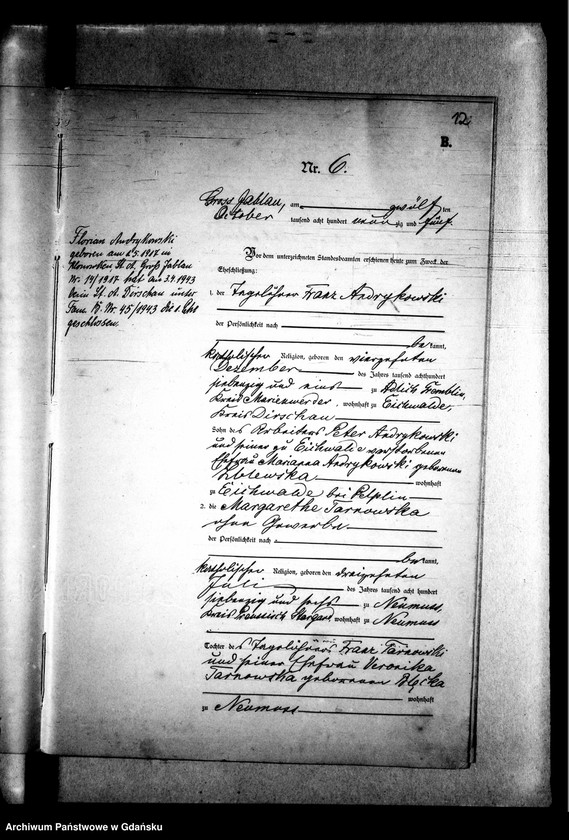 12.
B.
Nr. 6.
Gross Jablau, am zwölf ten
October tausend acht hundert neun zig und fünf.
Florian Andrykowski
geboren am 2.5.1907 in
St. A. Groß Jablau
Nr. 14/1907 hat am 3.9.1943
beim St. A. Dirschau unter
Fam. B. Nr. 45/1943 die 1. Ehe
geschlossen.
Vor dem unterzeichneten Standesbeamten erschienen heute zum Zweck der
Eheschließung:
1. der Tagelöhner Franz Andrykowski
der Persönlichkeit nach
be kannt,
katholischer Religion, geboren den vierzehnten
Dezember des Jahres tausend achthundert
siebenzig und eins zu Adlich
Kreis Marienwerder, wohnhaft zu Eichwalde,
Kreis Dirschau
Sohn des Arbeiters Peter Andrykowski
und seiner zu Eichwalde verstorbenen
Ehefrau Marianna Andrykowski geborenen
wohnhaft
zu Eichwalde bei Pelplin
2. die Margarethe Tarnowska
ohne Gewerbe
der Persönlichkeit nach
be kannt,
katholischer Religion, geboren den dreizehnten
Juli des Jahres tausend acht hundert
siebenzig und sechs zu Neumuss,
Kreis Preussisch Stargard wohnhaft zu Neumuss
Tochter des Tagelöhners Franz Tarnowski
und seiner Ehefrau Veronika
Tarnowska geborenen
wohnhaft
zu Neumuss
Archiwum Państwowe w Gdańsku